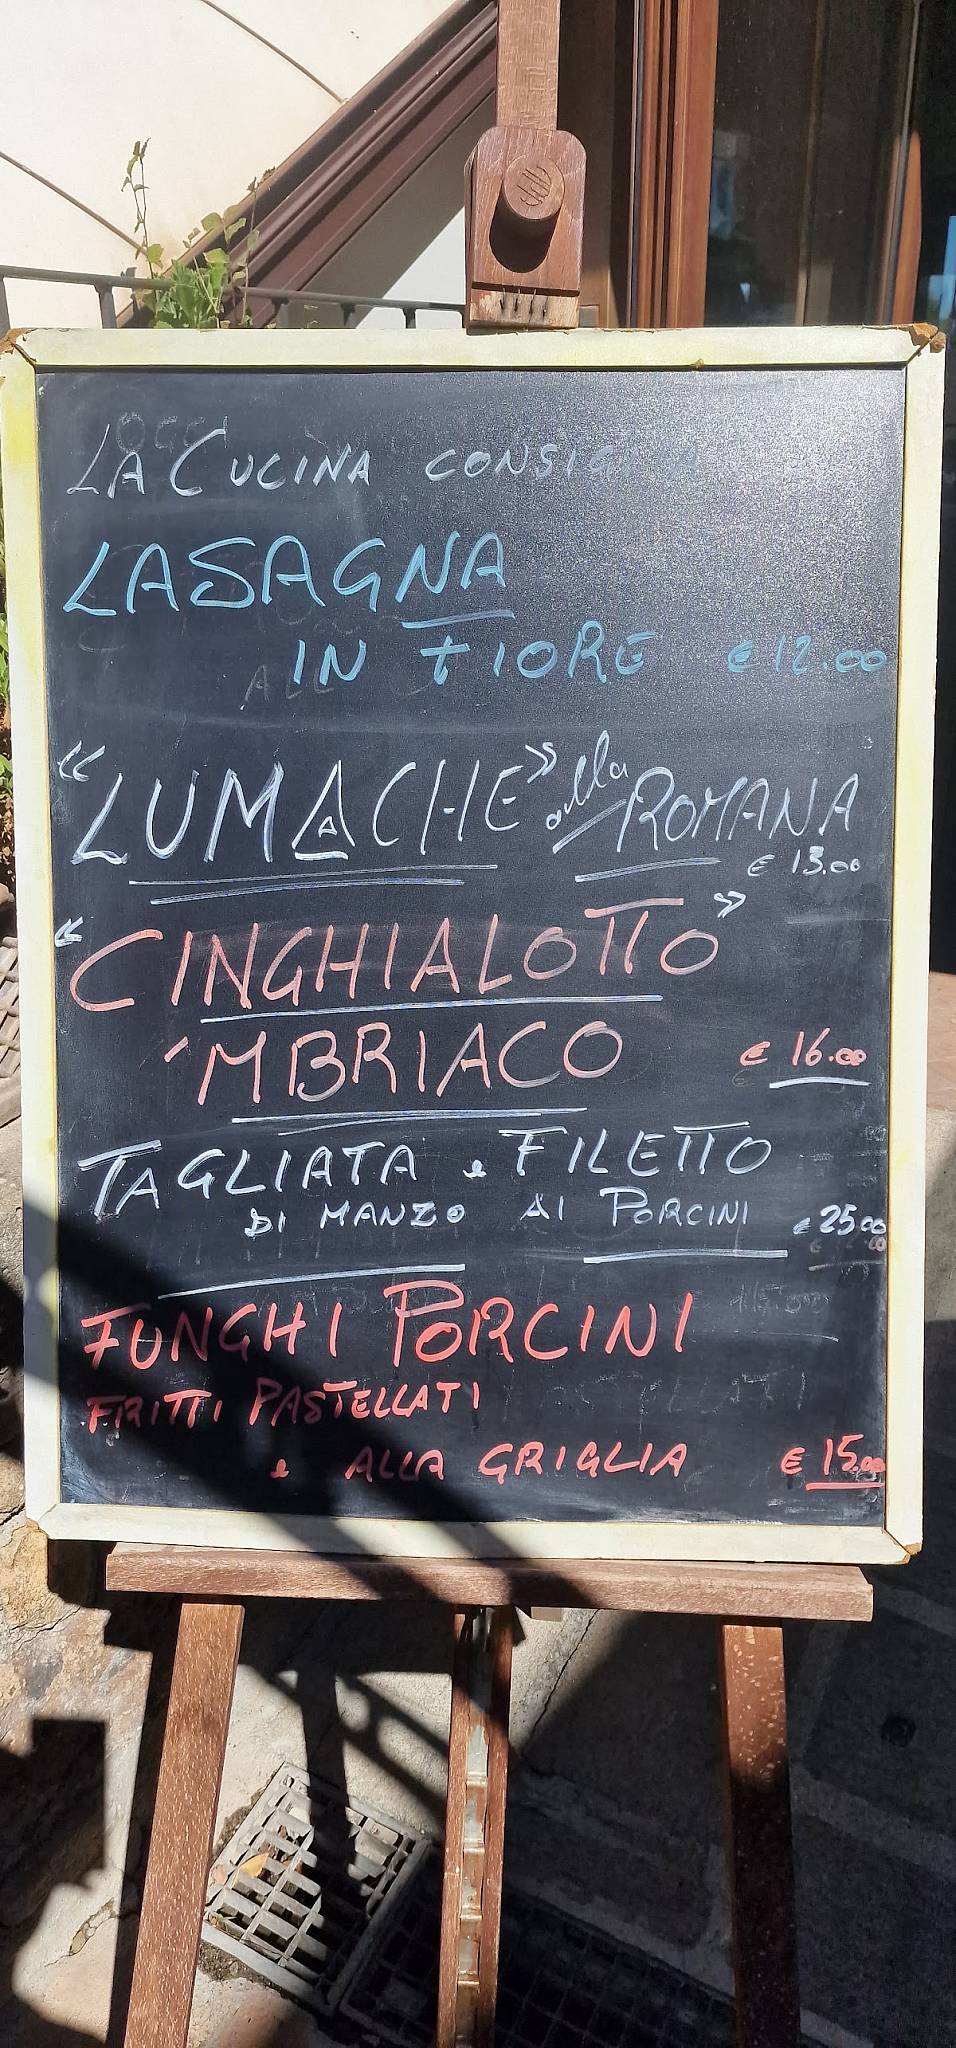 LA CUCINA CONSIGLIA
LASAGNA
IN FIORE € 12.00
"LUMACHE" alla ROMANA
€ 13.00
"CINGHIALOTTO"
'MBRIACO € 16.00
TAGLIATA e FILETTO
DI MANZO AI PORCINI € 25.00
FUNGHI PORCINI
FRITTI PASTELLATI
e ALLA GRIGLIA € 15.00